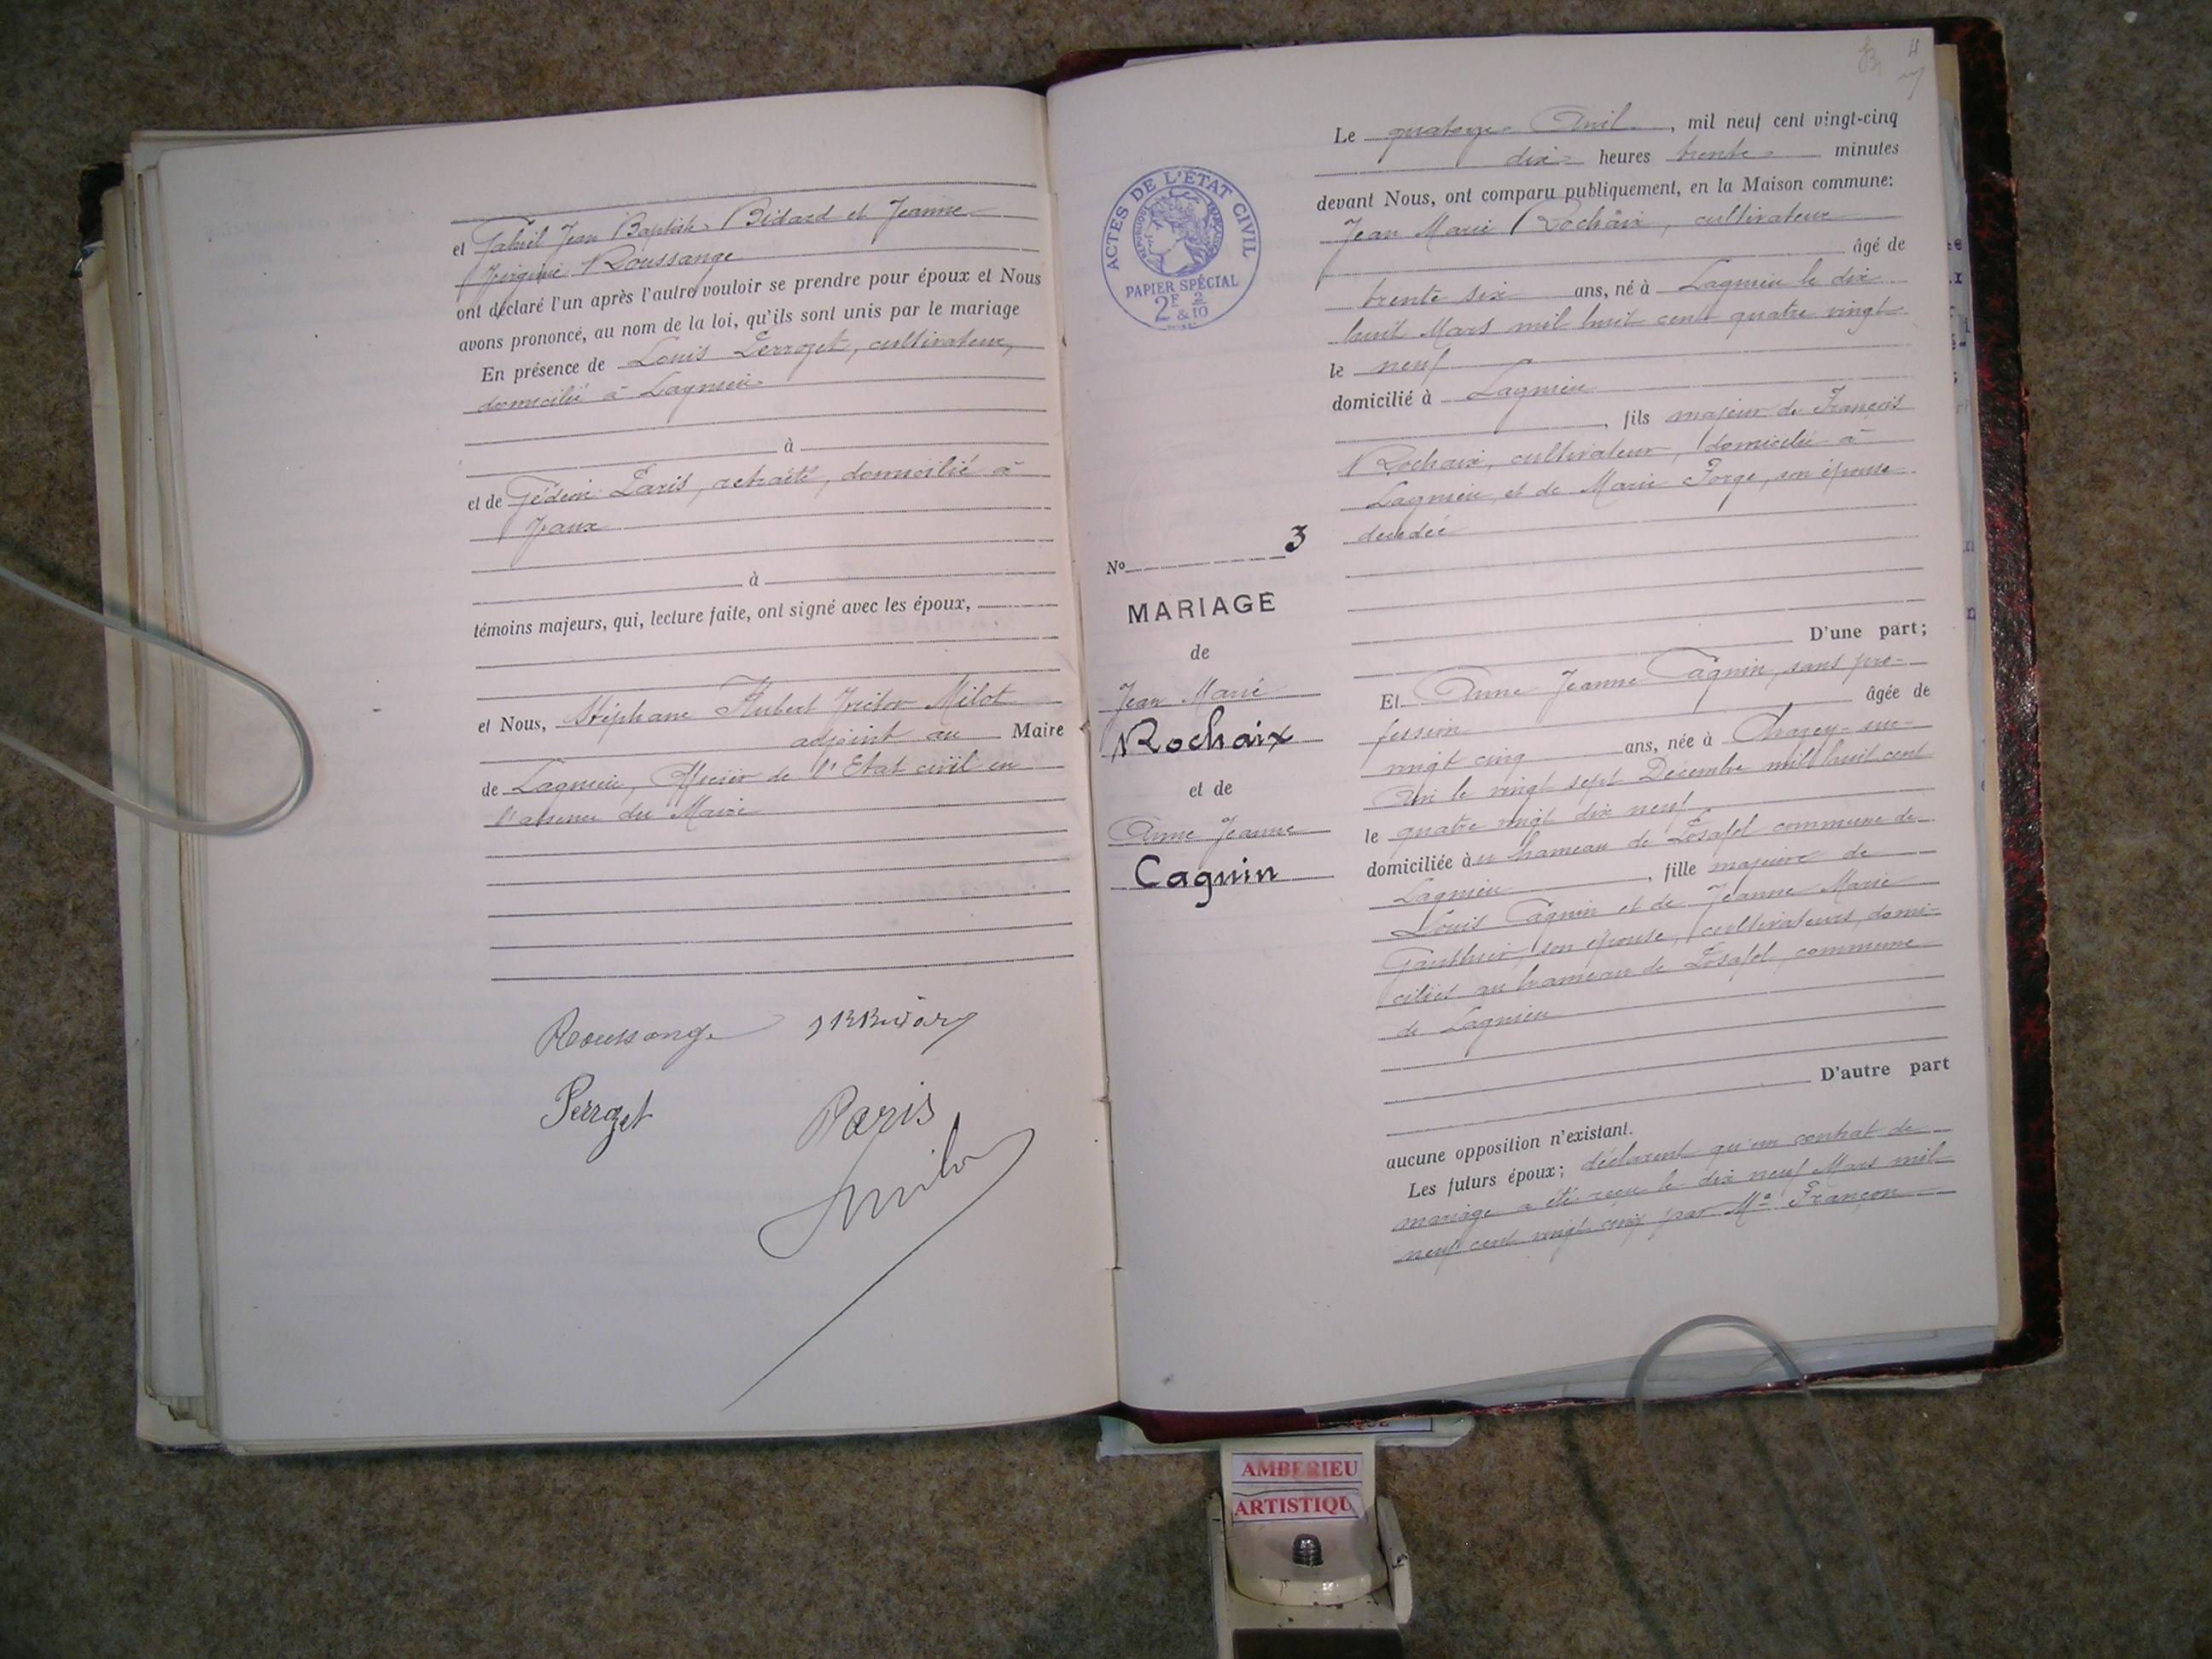 et Gabriel Jean Baptiste Bidard et Jeanne
Virginie Roussange
ont déclaré l'un après l'autre vouloir se prendre pour époux et Nous
avons prononcé, au nom de la loi, qu'ils sont unis par le mariage
En présence de Louis Perrozet, cultivateur,
domicilié à Lagnieu
à
et de Gédéon Paris, retraité, domicilié à
Vaux
à
témoins majeurs, qui, lecture faite, ont signé avec les époux,
et Nous, Stéphane Hubert Victor Milot
adjoint au Maire
de Lagnieu, Officier de l'Etat civil en
l'absence du Maire
Roussange
Perrozet Paris
Milot
4
Le quatorze Avril, mil neuf cent vingt-cinq
dix heures trente minutes
devant Nous, ont comparu publiquement, en la Maison commune:
Jean Marie Rochaix, cultivateur
âgé de
trente six ans, né à Lagnieu le dix
huit Mars mil huit cent quatre vingt
le neuf
domicilié à Lagnieu
, fils majeur de François
Rochaix, cultivateur, domicilié à
Lagnieu et de Marie Forge, son épouse
décédée
D'une part;
Et Anne Jeanne Cagnin, sans pro-
fession âgée de
vingt cinq ans, née à Charey-sur-
Ain le vingt sept Décembre mil huit cent
le quatre vingt dix neuf
domiciliée au hameau de Posafol commune de
Lagnieu, fille majeure de
Louis Cagnin et de Jeanne Marie
Gauthier, son épouse, cultivateurs, domi-
ciliés au hameau de Posafol, commune
de Lagnieu
D'autre part
aucune opposition n'existant.
Les futurs époux; déclarent qu'un contrat de
mariage a été reçu le dix neuf Mars mil
neuf cent vingt cinq par Me Françon
ACTES DE L'ÉTAT CIVIL
PAPIER SPÉCIAL
2F & 2/10
No 3
MARIAGE
de
Jean Marie
Rochaix
et de
Anne Jeanne
Cagnin
AMBERIEU
ARTISTIQU